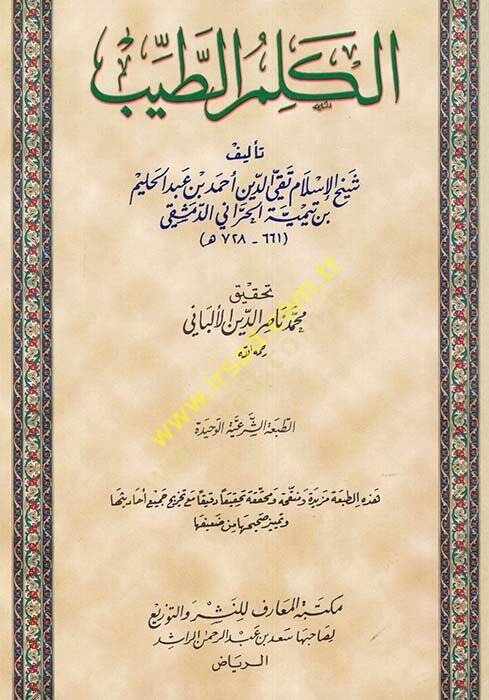 الكلم الطيب
تأليف
شيخ الإسلام تقي الدين أحمد بن عبد الحليم
بن تيمية الحراني الدمشقي
(٦٦١ - ٧٢٨ هـ)
تحقيق
محمد ناصر الدين الألباني
رحمه الله
الطبعة الشرعية الوحيدة
هذه الطبعة مزيدة ومنقحة ومحققة تحقيقاً دقيقاً مع تخريج جميع أحاديثها
وتمييز صحيحها من ضعيفها
مكتبة المعارف للنشر والتوزيع
لصاحبها سعد بن عبد الرحمن الراشد
الرياض